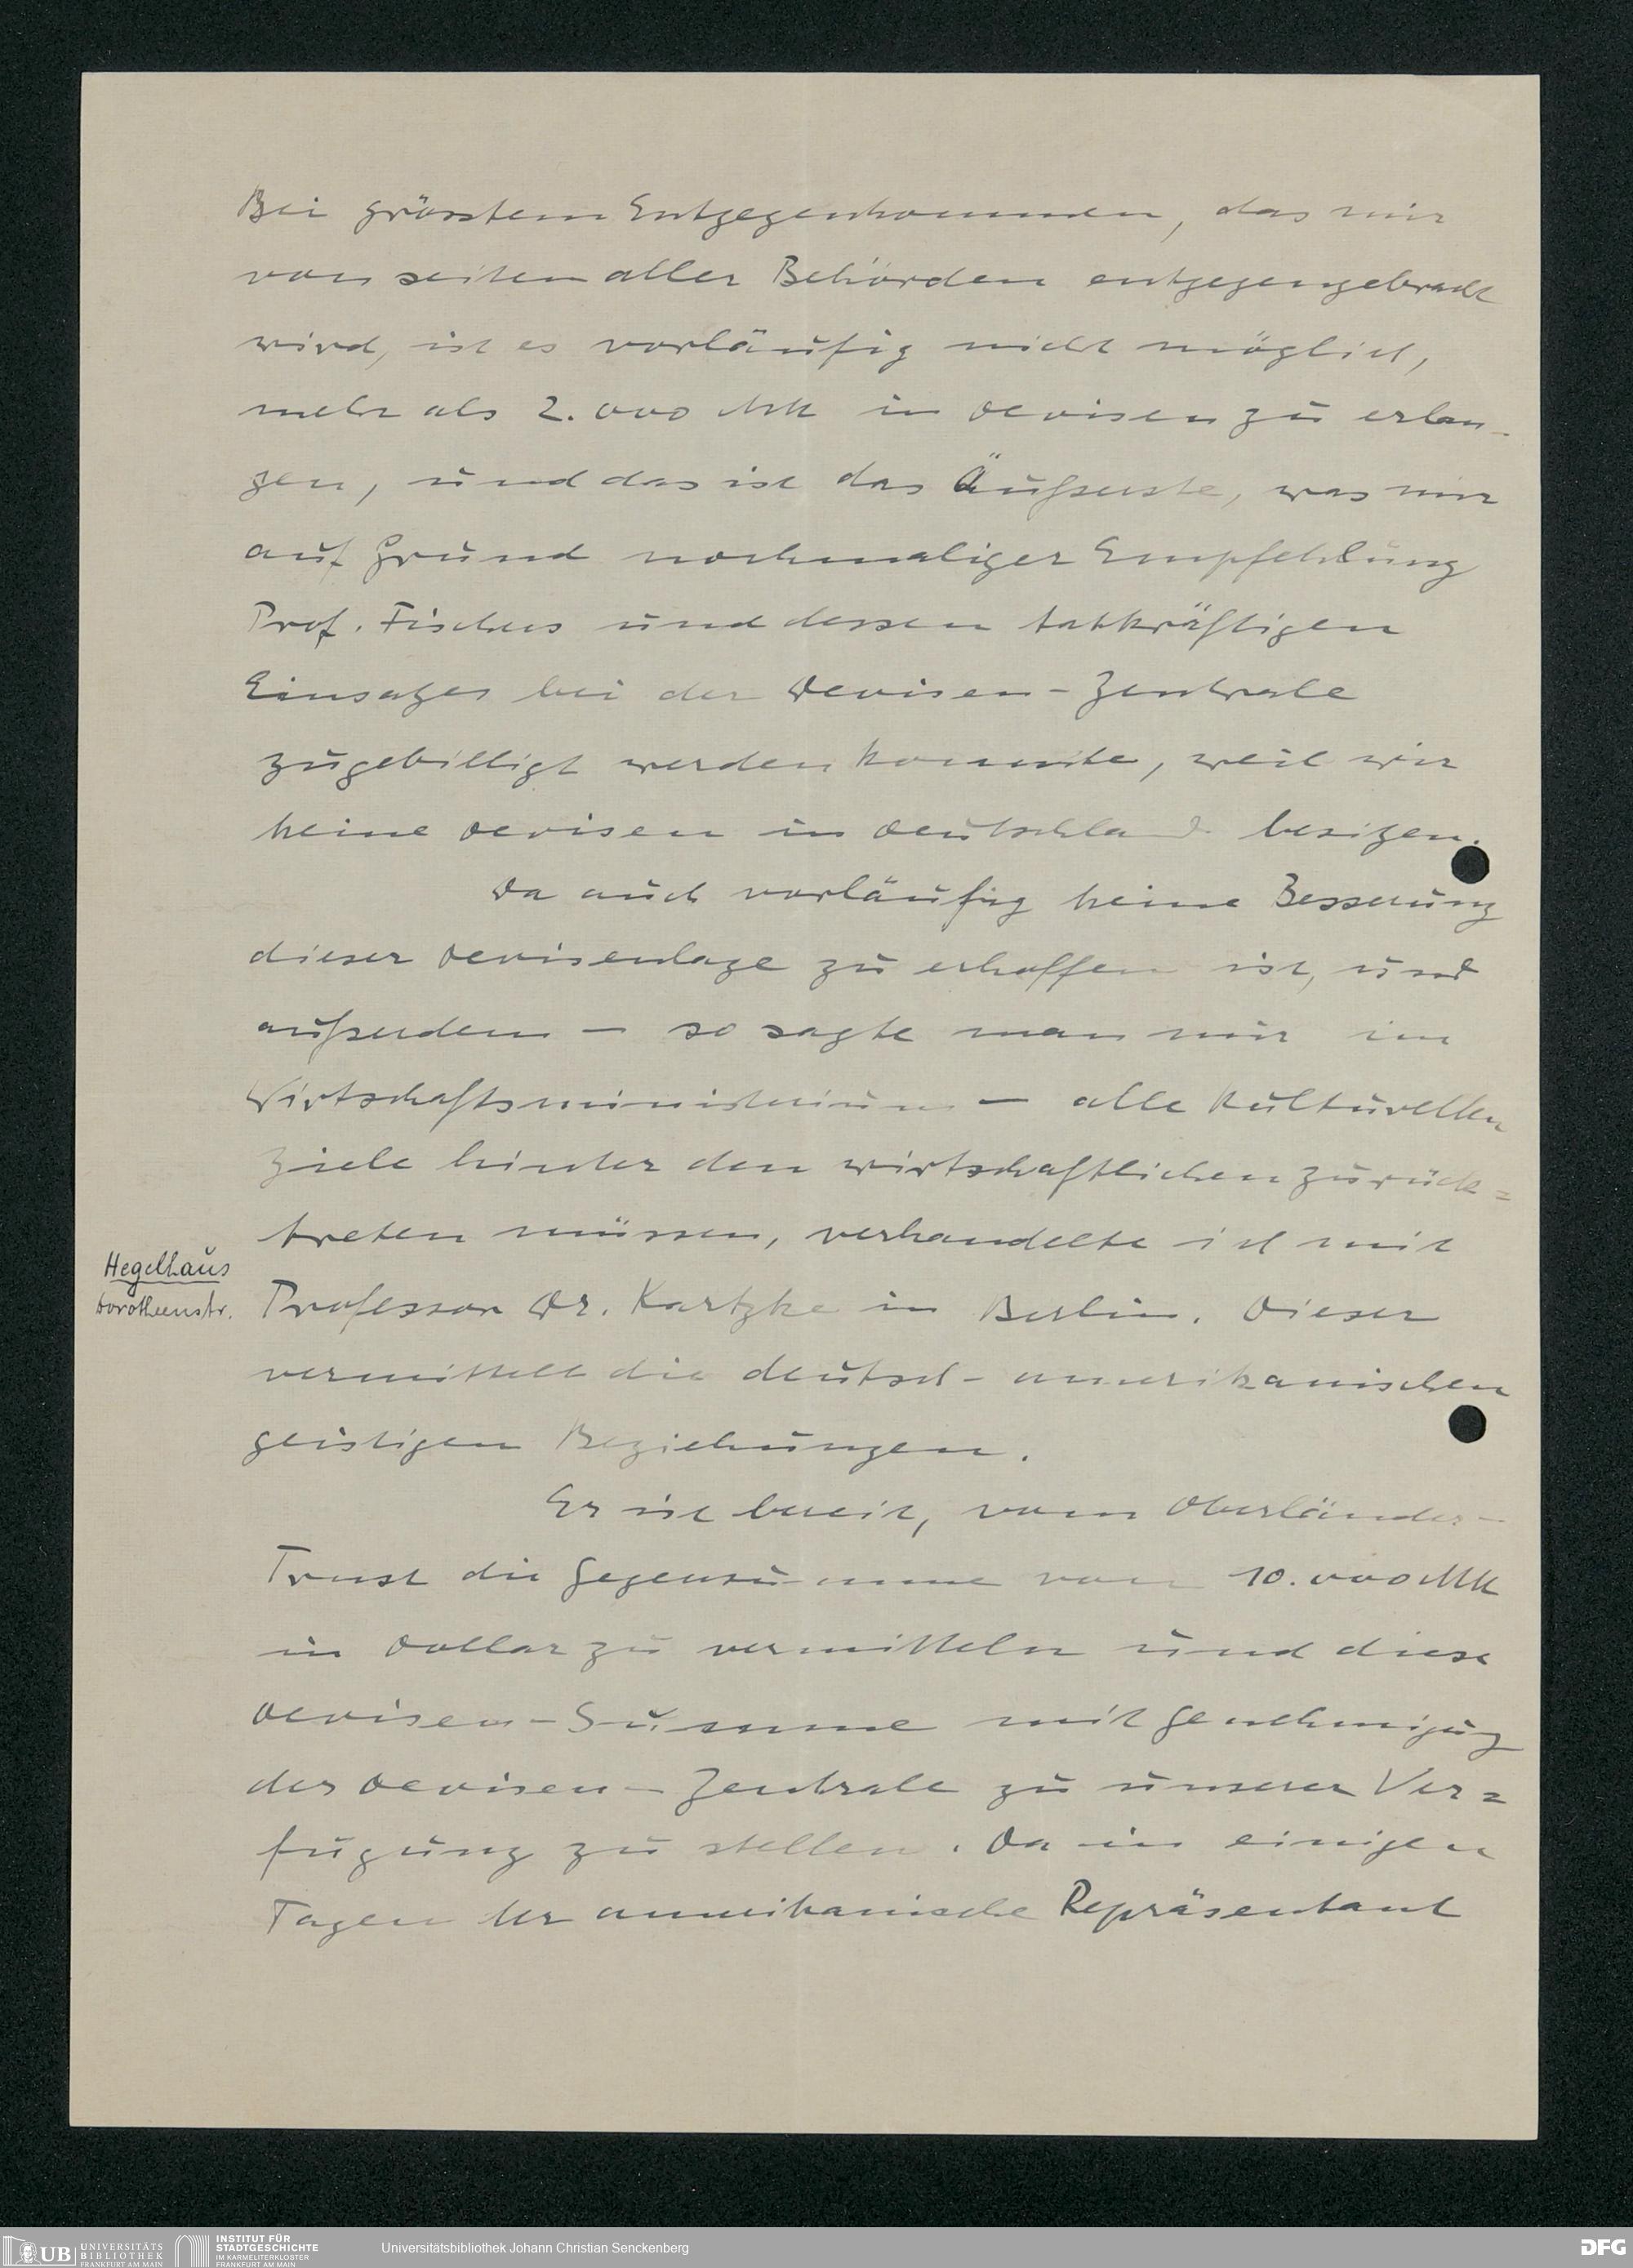 Bei grösstem Entgegenkommen, das mir
von seiten aller Behörden entgegengebracht
wird, ist es vorläufig nicht möglich,
mehr als 2.000 Mk in Devisen zu erlan-
gen, und das ist das Äußerste, was mir
auf Grund nochmaliger Empfehlung
Prof. Fischers und dessen tatkräftigen
Einsatzes bei der Devisen-Zentrale
zugebilligt werden konnte, weil wir
keine Devisen in Deutschland besitzen.
Da auch vorläufig keine Besserung
dieser Devisenlage zu erhoffen ist, und
außerdem – so sagte man mir im
Wirtschaftsministerium – alle kulturellen
Ziele hinter den wirtschaftlichen zurück=
treten müssen, verhandelte ich mit
Hegelhaus
Dorotheenstr.
Professor Dr. Kartzke in Berlin. Dieser
vermittelt die deutsch-amerikanischen
geistigen Beziehungen.
Er ist bereit, vom Oberländer-
Trust die Gegensumme von 10.000 Mk
in Dollar zu vermitteln und diese
Devisen-Summe mit Genehmigung
der Devisen-Zentrale zu unserer Ver=
fügung zu stellen. Da in einigen
Tagen der amerikanische Repräsentant
UB UNIVERSITÄTS
BIBLIOTHEK
FRANKFURT AM MAIN
INSTITUT FÜR
STADTGESCHICHTE
IM KARMELITERKLOSTER
FRANKFURT AM MAIN
Universitätsbibliothek Johann Christian Senckenberg
DFG